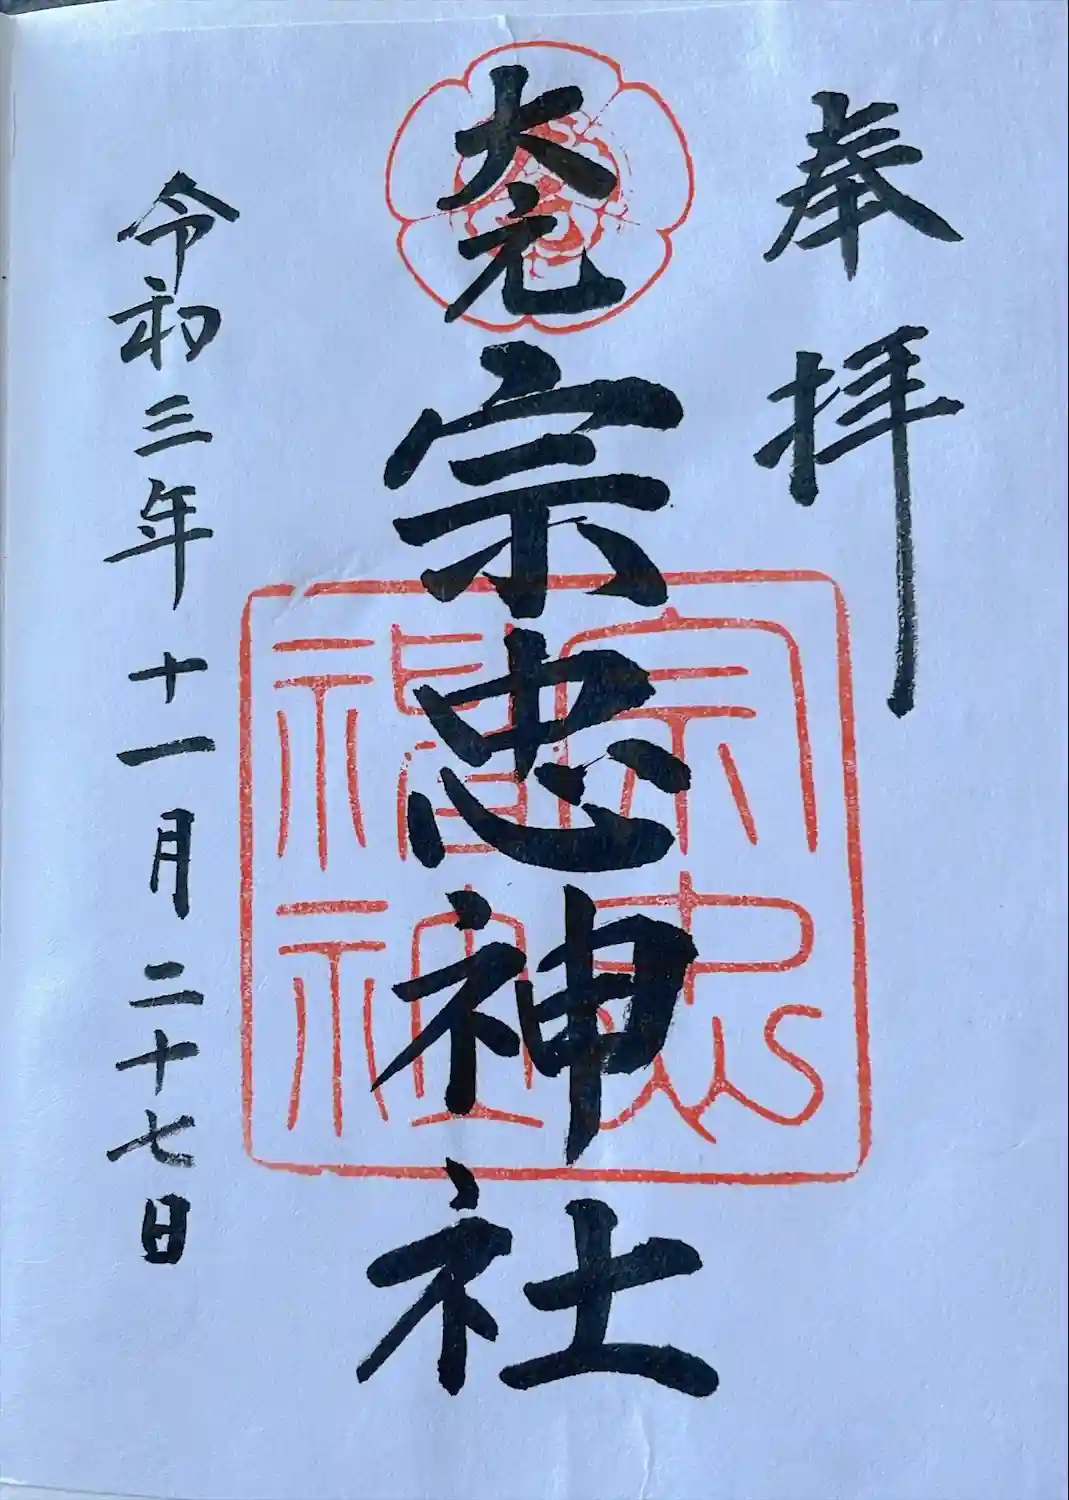 奉拝
大元
宗忠神社
宗忠神社
令和三年十一月二十七日